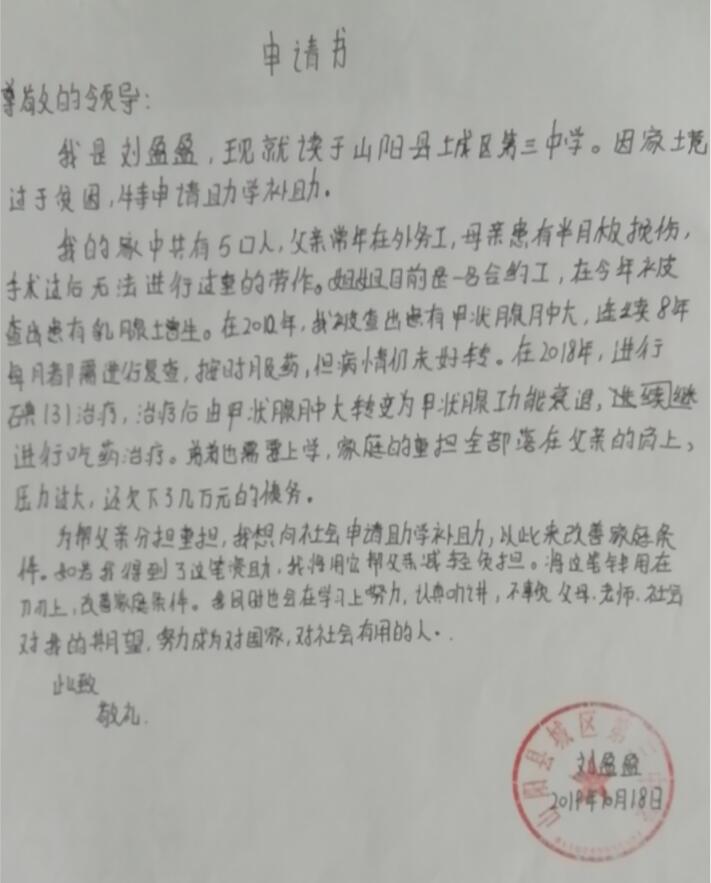 申请书
尊敬的领导：
我是刘盈盈，现就读于山阳县城区第三中学。因家境
过于贫困，特申请助学补助。
我的家中共有5口人，父亲常年在外务工，母亲患有半月板损伤，
手术过后无法进行过重的劳作。姐姐目前是一名合约工，在今年被
查出患有乳腺增生。在2012年，我被查出患有甲状腺肿大，连续8年
每月都需进行复查，按时服药，但病情仍未好转。在2018年，进行
碘131治疗，治疗后由甲状腺肿大转变为甲状腺功能衰退，继续
进行吃药治疗。弟弟也需要上学，家庭的重担全部落在父亲的肩上，
压力过大，还欠下了几万元的债务。
为帮父亲分担重担，我想向社会申请助学补助，以此来改善家庭条
件。如若我得到了这笔资助，我将用它帮父亲减轻负担。将这笔钱用在
刀刃上，改善家庭条件。我同时也会在学习上努力，认真听讲，不辜负父母、老师、社会
对我的期望，努力成为对国家，对社会有用的人。
此致
敬礼.
山阳县城区第三中学
刘盈盈
2019年10月18日